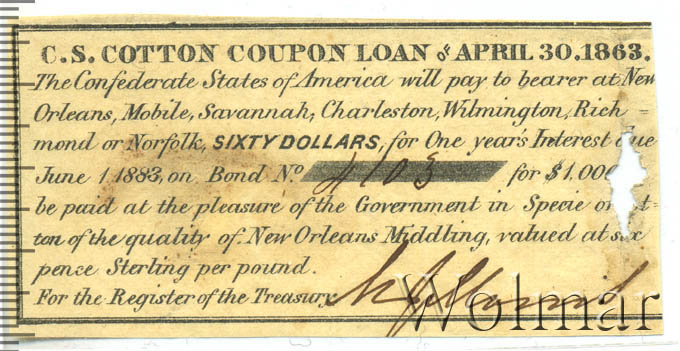 C.S. COTTON COUPON LOAN OF APRIL 30.1863.
The Confederate States of America will pay to bearer at New
Orleans, Mobile, Savannah, Charleston, Wilmington, Rich
mond or Norfolk, SIXTY DOLLARS, for One year's Interest due
June 1.1883, on Bond No. 4103 for $1,000
be paid at the pleasure of the Government in Specie or
ton of the quality of New Orleans Middling, valued at six
pence Sterling per pound.
For the Register of the Treasury
Wolmar